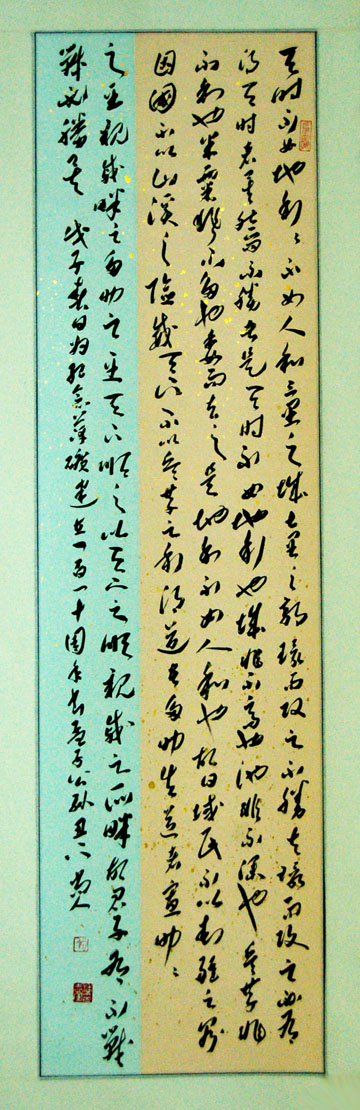 天时不如地利々不如人和三里之城七里之郭環而攻之不勝夫環而攻之必有
得天时者矣然而不勝者是天时不如地利也城非不高也池非不深也兵革非
不利也米粟非不多也委而去之是地利不如人和也故曰域民不以封疆之界
固國不以山溪之險威天下不以兵革之利得道者多助失道者寡助々
之至親戚畔之多助之至天下順之以天下之順親戚之所畔故君子有不戰
戰必勝矣 戊子春日为纪念萍礦建立一百一十周年书孟子公孙丑下